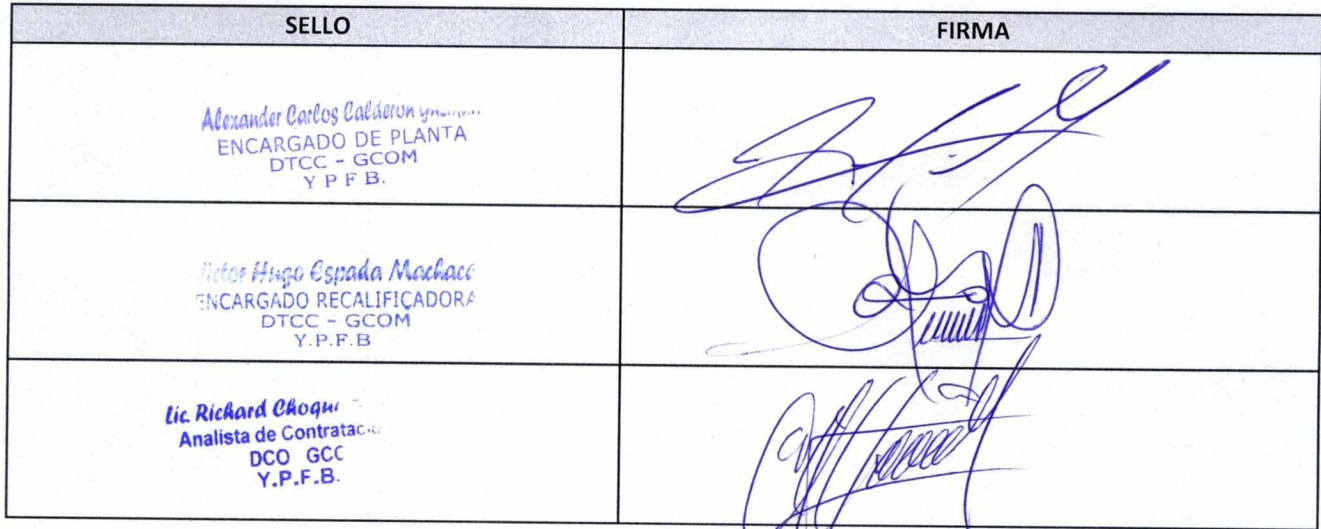 SELLO
FIRMA
Alexander Carlos Calderon
ENCARGADO DE PLANTA
DTCC - GCOM
Y P F B.
Hugo Espada
ENCARGADO RECALIFICADORA
DTCC - GCOM
Y.P.F.B
Lic. Richard
Analista de
DCO
Y.P.F.B.